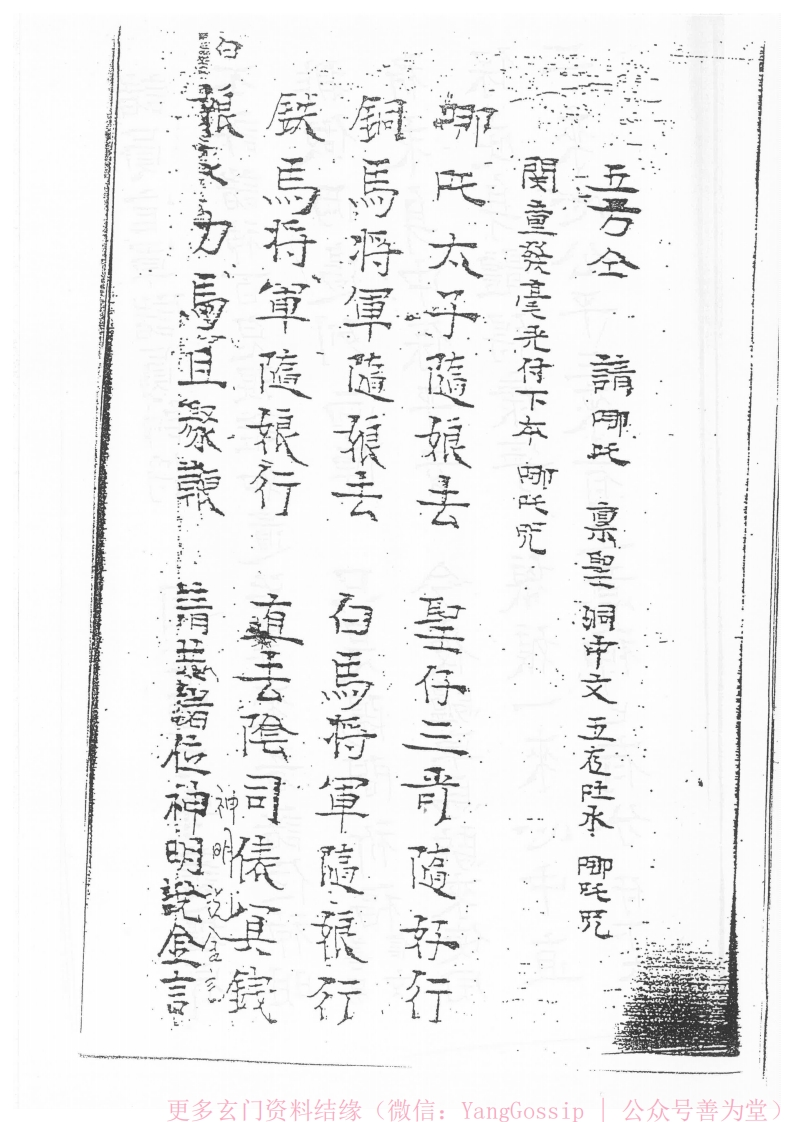 五方仝 請哪吒 禀聖 洞中文 五夜旺永 哪吒咒
関童發毫光付下年 哪吒咒
哪吒太子隨娘去 聖仔三哥隨好行
銅馬將軍隨娘去 白馬將軍隨娘行
鉄馬將軍隨娘行 直去陰司俵冥錢
神明 说金言
娘 力馬且 請 諸位神明說金言
白
更多玄门资料结缘（微信：YangGossip | 公众号善为堂）